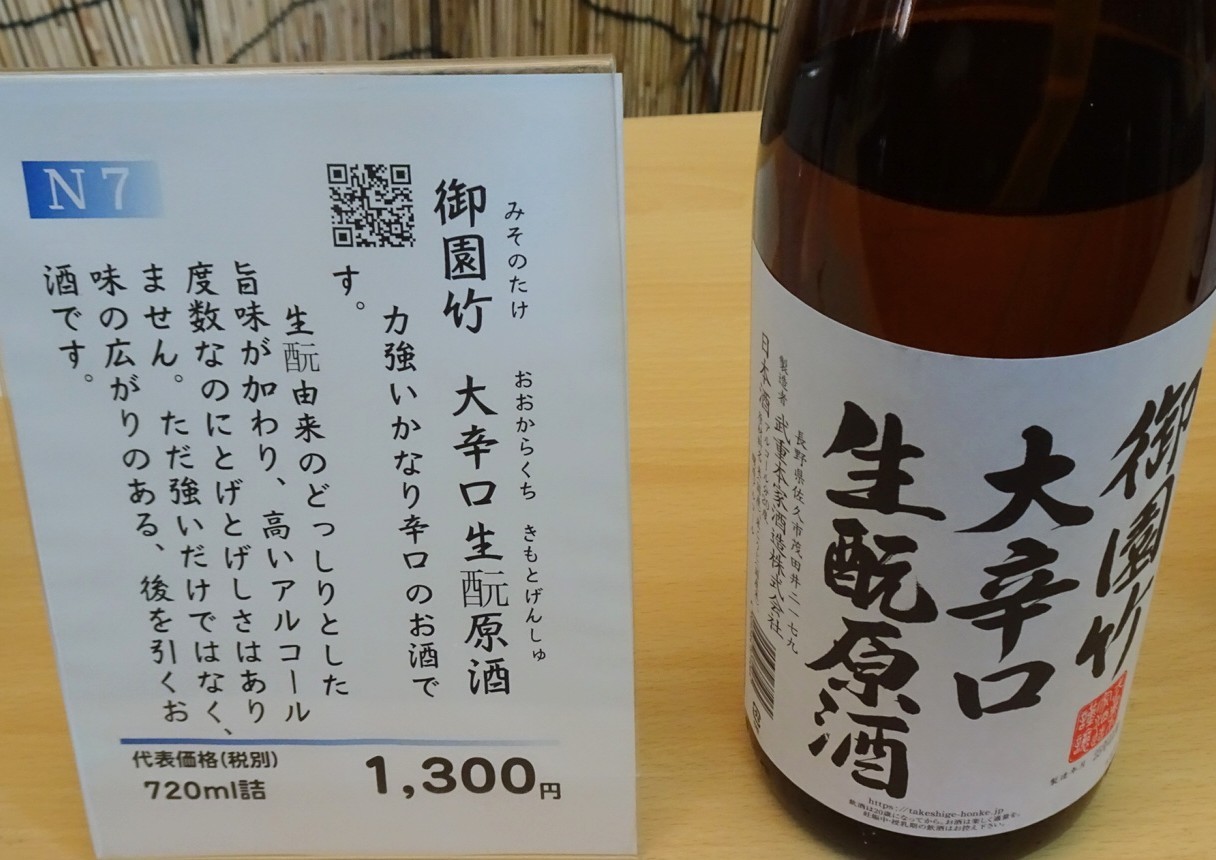 N7
みそのたけ おおからくち きもとげんしゅ
御園竹 大辛口生酛原酒
力強いかなり辛口のお酒で
す。
生酛由来のどっしりとした
旨味が加わり、高いアルコール
度数なのにとげとげしさはあり
ません。ただ強いだけではなく、
味の広がりのある、後を引くお
酒です。
代表価格(税別)
720ml詰
1,300円
御園竹
大辛口
生酛原酒
長野県佐久市茂田井二一七九
製造者 武重本家酒造株式会社
日本酒
https://takeshige-honke.jp
飲酒は20歳になってから。お酒は楽しく適量を。
妊娠中・授乳期の飲酒はお控え下さい。
製造年月